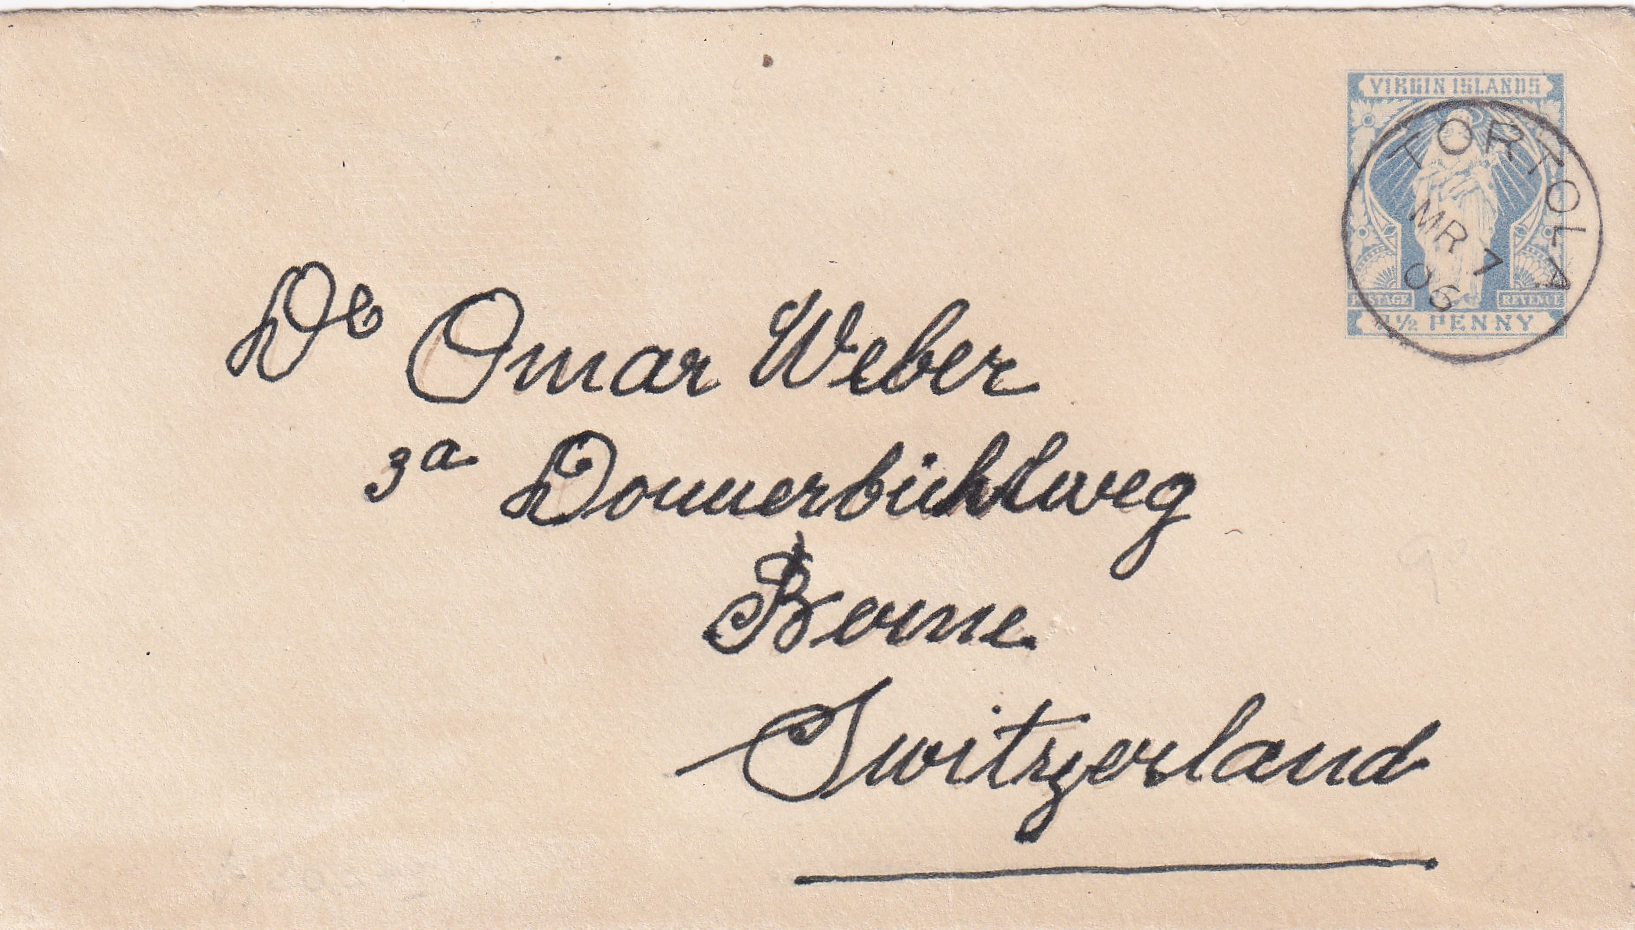 VIRGIN ISLANDS
TORTOLA
MR 7
06
POSTAGE REVENUE
PENNY
Dr Omar Weber
3a Donnerbühlweg
Berne
Switzerland